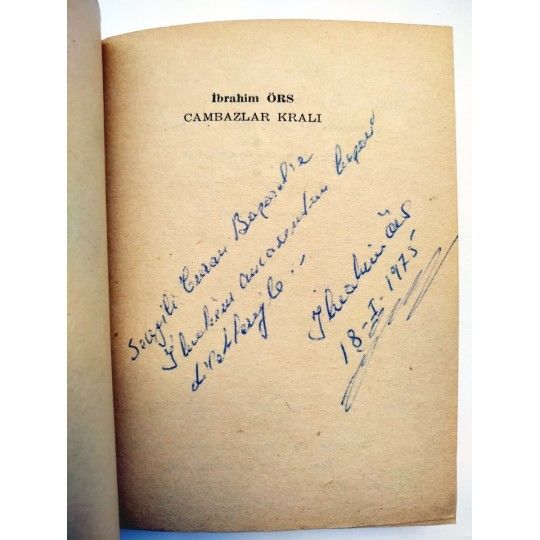 İbrahim ÖRS
CAMBAZLAR KRALI
Sevgili Turan
İbrahim amcasından başarı
dilekleriyle..
İbrahim Örs
18-I-1975